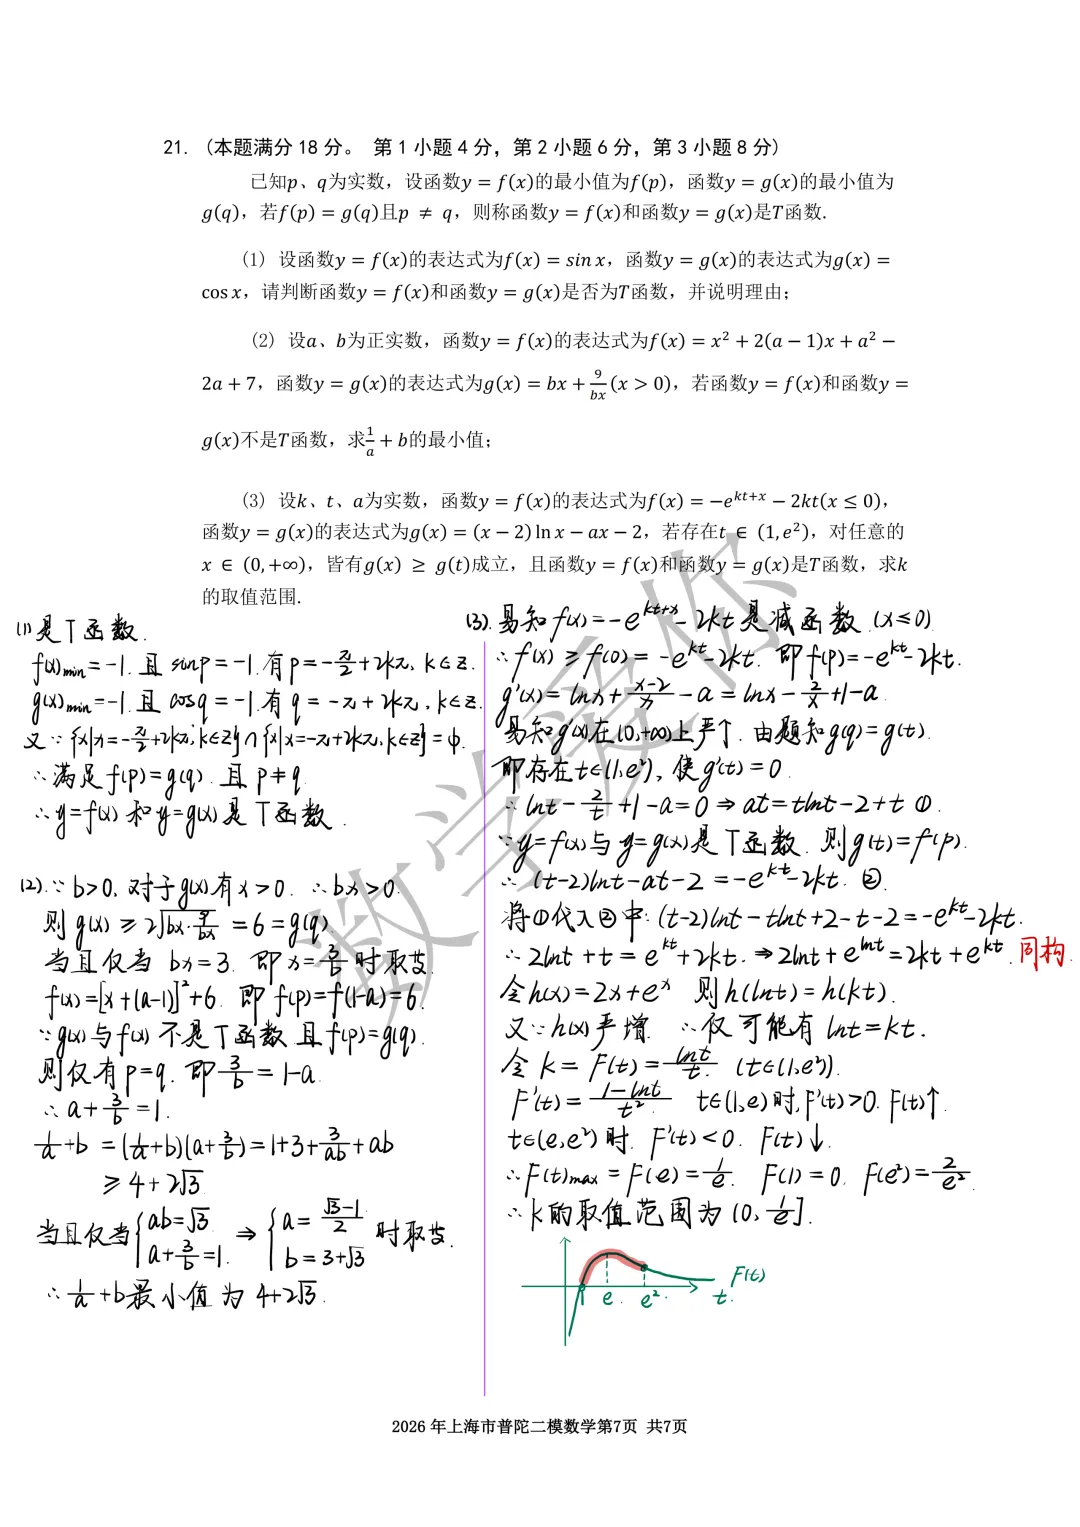 21. (本题满分 18 分。 第 1 小题 4 分，第 2 小题 6 分，第 3 小题 8 分)
已知p、q为实数，设函数y = f(x)的最小值为f(p)，函数y = g(x)的最小值为
g(q)，若f(p) = g(q)且p ≠ q，则称函数y = f(x)和函数y = g(x)是T函数.
(1) 设函数y = f(x)的表达式为f(x) = sin x，函数y = g(x)的表达式为g(x) =
cos x，请判断函数y = f(x)和函数y = g(x)是否为T函数，并说明理由；
(2) 设a、b为正实数，函数y = f(x)的表达式为f(x) = x² + 2(a − 1)x + a² −
2a + 7，函数y = g(x)的表达式为g(x) = bx + 9/bx (x > 0)，若函数y = f(x)和函数y =
g(x)不是T函数，求1/a + b的最小值；
(3) 设k、t、a为实数，函数y = f(x)的表达式为f(x) = −e^(kt+x) − 2kt(x ≤ 0)，
函数y = g(x)的表达式为g(x) = (x − 2) ln x − ax − 2，若存在t ∈ (1, e²)，对任意的
x ∈ (0, +∞)，皆有g(x) ≥ g(t)成立，且函数y = f(x)和函数y = g(x)是T函数，求k
的取值范围.
(1) 是T函数.
f(x)min = −1. 且 sinp = −1. 有 p = −π/2 + 2kπ, k∈Z.
g(x)min = −1. 且 cosq = −1. 有 q = −π + 2kπ, k∈Z.
又∵ {x|x=−π/2+2kπ, k∈Z} ∩ {x|x=−π+2kπ, k∈Z} = φ.
∴ 满足 f(p) = g(q). 且 p ≠ q
∴ y = f(x) 和 y = g(x) 是T函数.
(2). ∵ b>0, 对于g(x)有 x>0. ∴ bx>0.
则 g(x) ≥ 2√(bx·9/bx) = 6 = g(q)
当且仅当 bx=3. 即 x=3/b 时取等.
f(x) = [x+(a−1)]²+6. 即 f(p)=f(1−a)=6.
∵ g(x) 与 f(x) 不是T函数. 且 f(p)=g(q).
则仅有 p=q. 即 3/b = 1−a.
∴ a + 3/b = 1.
1/a + b = (1/a + b)(a + 3/b) = 1+3+3/ab + ab
≥ 4+2√3
当且仅当 { ab=√3 a+3/b=1. ⇒ { a = (√3−1)/2 b = 3+√3 时取等.
∴ 1/a + b 最小值为 4+2√3.
(3). 易知 f(x) = −e^(kt+x) − 2kt 是减函数 (x≤0).
∴ f(x) ≥ f(0) = −e^kt − 2kt. 即 f(p) = −e^kt − 2kt.
g'(x) = lnx + (x−2)/x − a = lnx − 2/x + 1 − a
易知 g'(x) 在 (0,+∞) 上严个. 由题知 g(q) = g(t).
即存在 t∈(1,e²), 使 g'(t) = 0
∴ lnt − 2/t + 1 − a = 0 ⇒ at = tlnt − 2 + t ①.
∵ y = f(x) 与 y = g(x) 是T函数. 则 g(t) = f(p).
∴ (t−2)lnt − at − 2 = −e^kt − 2kt. ②.
将①代入②中: (t−2)lnt − tlnt + 2 − t − 2 = −e^kt − 2kt.
∴ 2lnt + t = e^kt + 2kt. ⇒ 2lnt + e^lnt = 2kt + e^kt. 同构.
令 h(x) = 2x + e^x 则 h(lnt) = h(kt).
又∵ h(x) 严增. ∴ 仅可能有 lnt = kt.
令 k = F(t) = lnt/t. (t∈(1,e²)).
F'(t) = (1−lnt)/t². t∈(1,e) 时, F'(t)>0. F(t)↑.
t∈(e,e²) 时. F'(t)<0. F(t)↓.
∴ F(t)max = F(e) = 1/e. F(1) = 0. F(e²) = 2/e².
∴ k 的取值范围为 (0, 1/e].
F(t)
1 e. e². t.
数学爱你
2026 年上海市普陀二模数学第7页 共7页